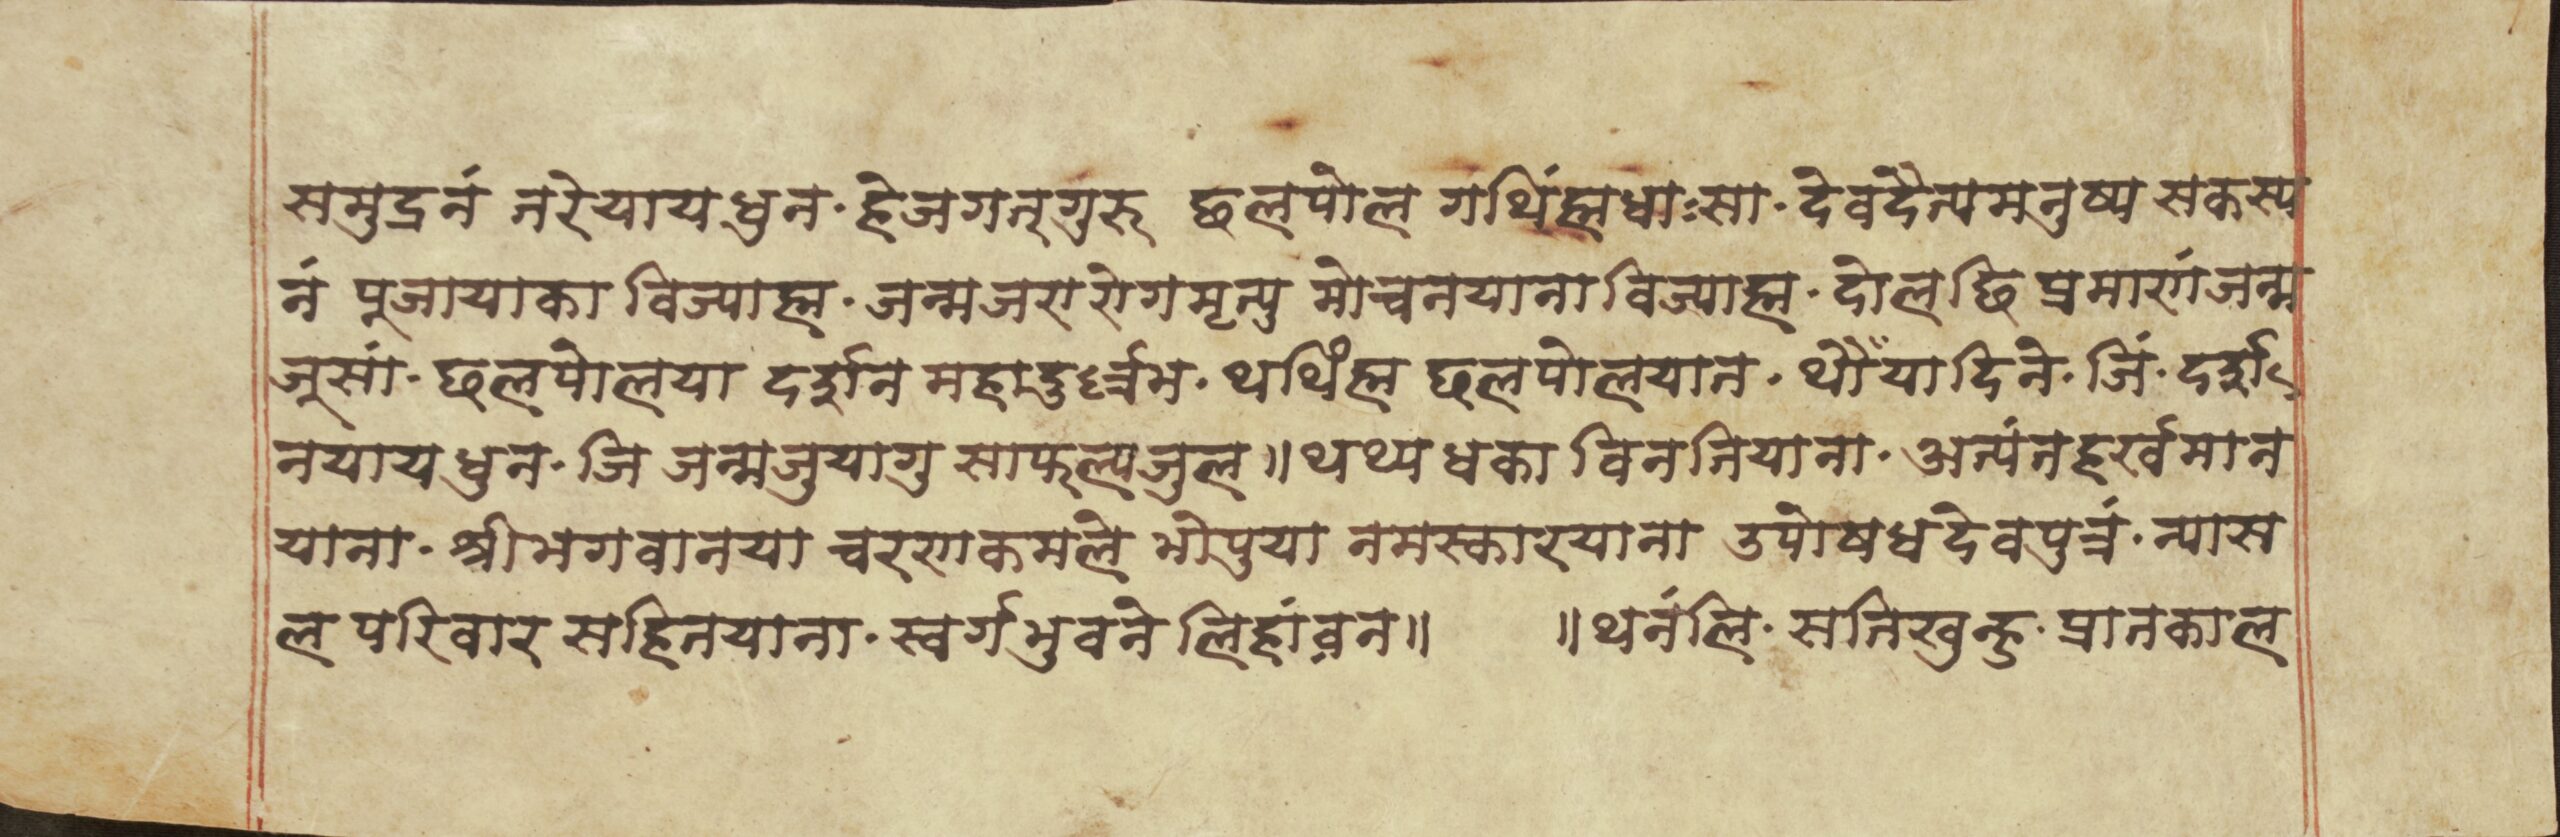 समुद्रनं तरेयाय धुन· हे जगत्गुरु छलपोल गथिंह्मधाःसा· देवदैत्यमनुष्य सकस्य
नं पूजायाका विज्याह्म· जन्मजरारोगमृत्यु मोचनयाना विज्याह्म· दोलछि प्रमाणं जन्म
जूसां· छलपोलया दर्शन महादुर्ल्लभ· थथिंह्म छलपोलयात· थौंया दिने· जिं· दर्श
नयाय धुन· जि जन्मजुयागु साफल्यजुल॥ थथ्य धका विनतियाना· अत्यंत हर्खमान
याना· श्रीभगवानया चरणकमले भोपुया नमस्कारयाना उपोषधदेवपुत्रं· त्यास
ल परिवार सहितयाना· स्वर्गभुवने लिहांवन॥ ॥थनंलि· सतिखुन्हु· प्रातकाल